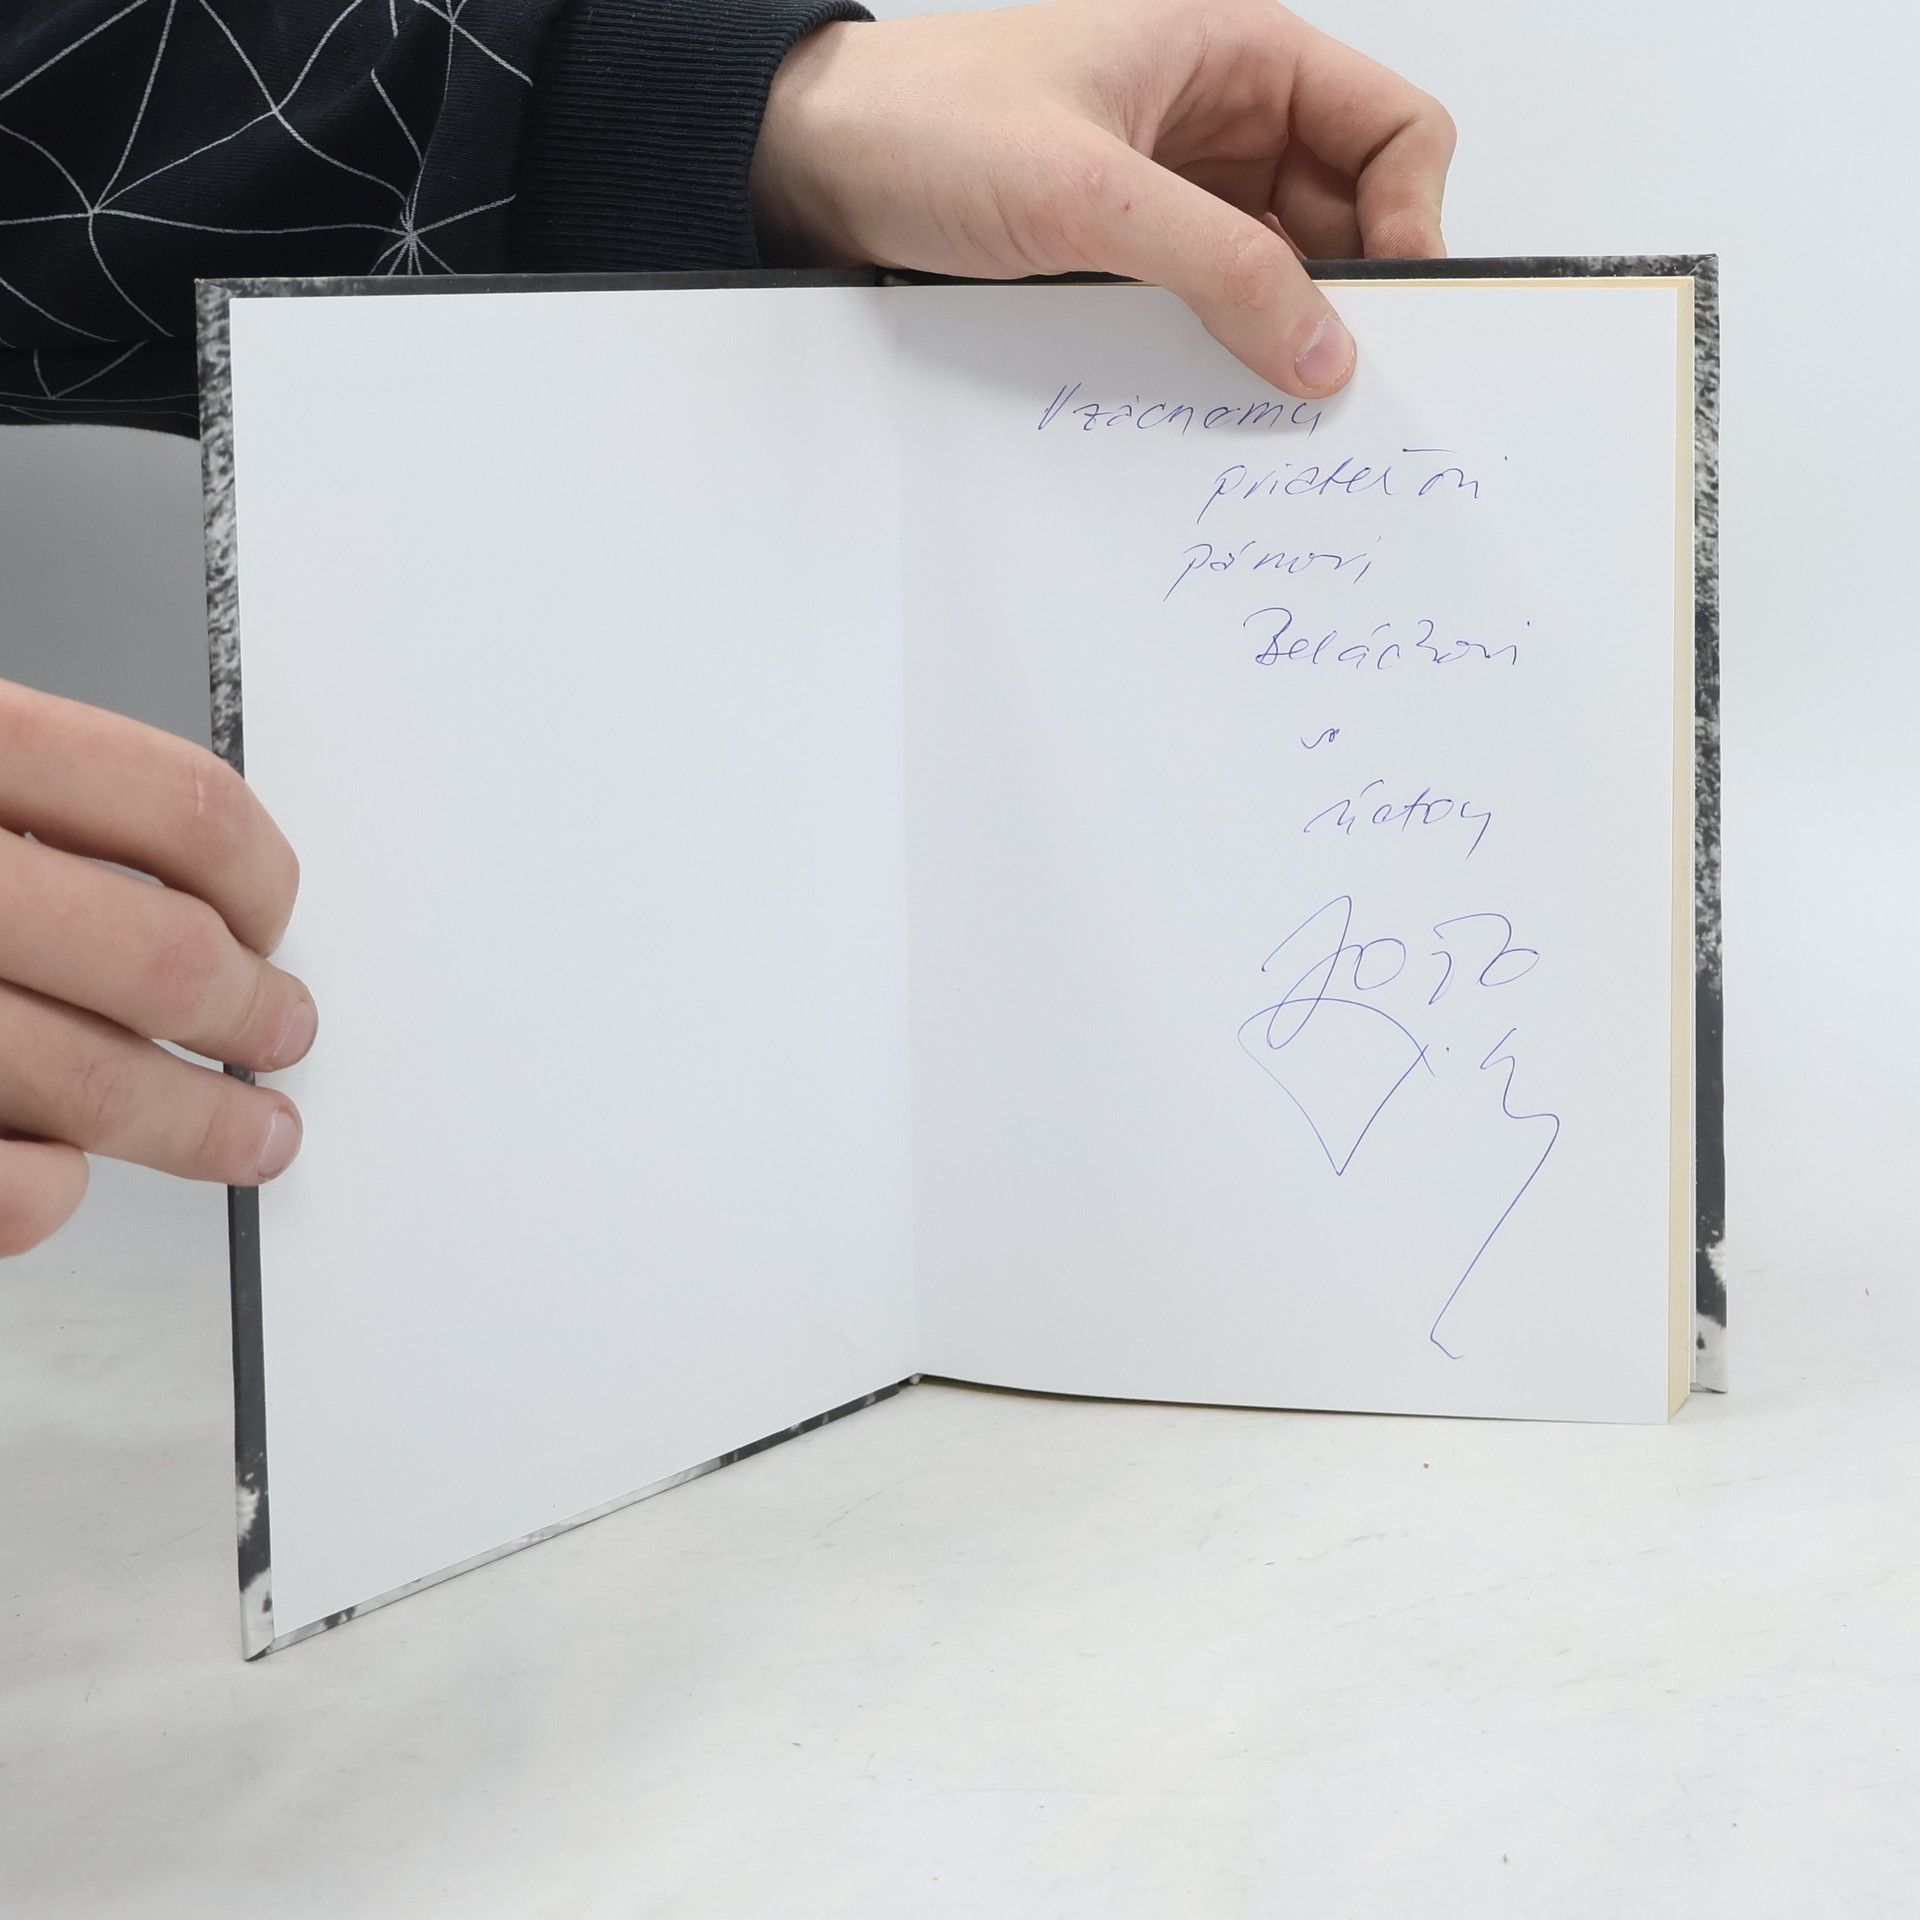 Vzácnemu
priateľovi
pánovi
Beláčkovi
s
úctou
Jozo